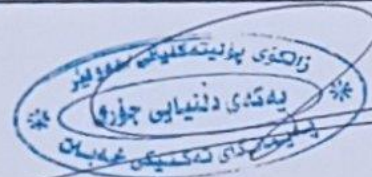 زانکۆی پۆلیتەکنیکی هەولێر
یەکەی دڵنیایی جۆری
پەیمانگای تەکنیکی خەبات